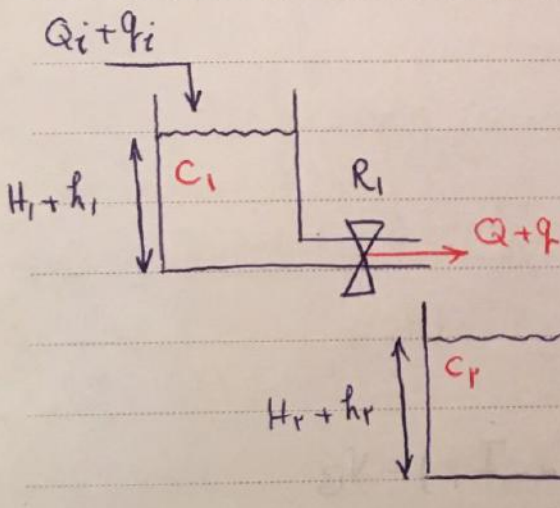 Qi + qi
H₁ + h₁
C₁
R₁
Q + q
H۲ + h۲
C۲